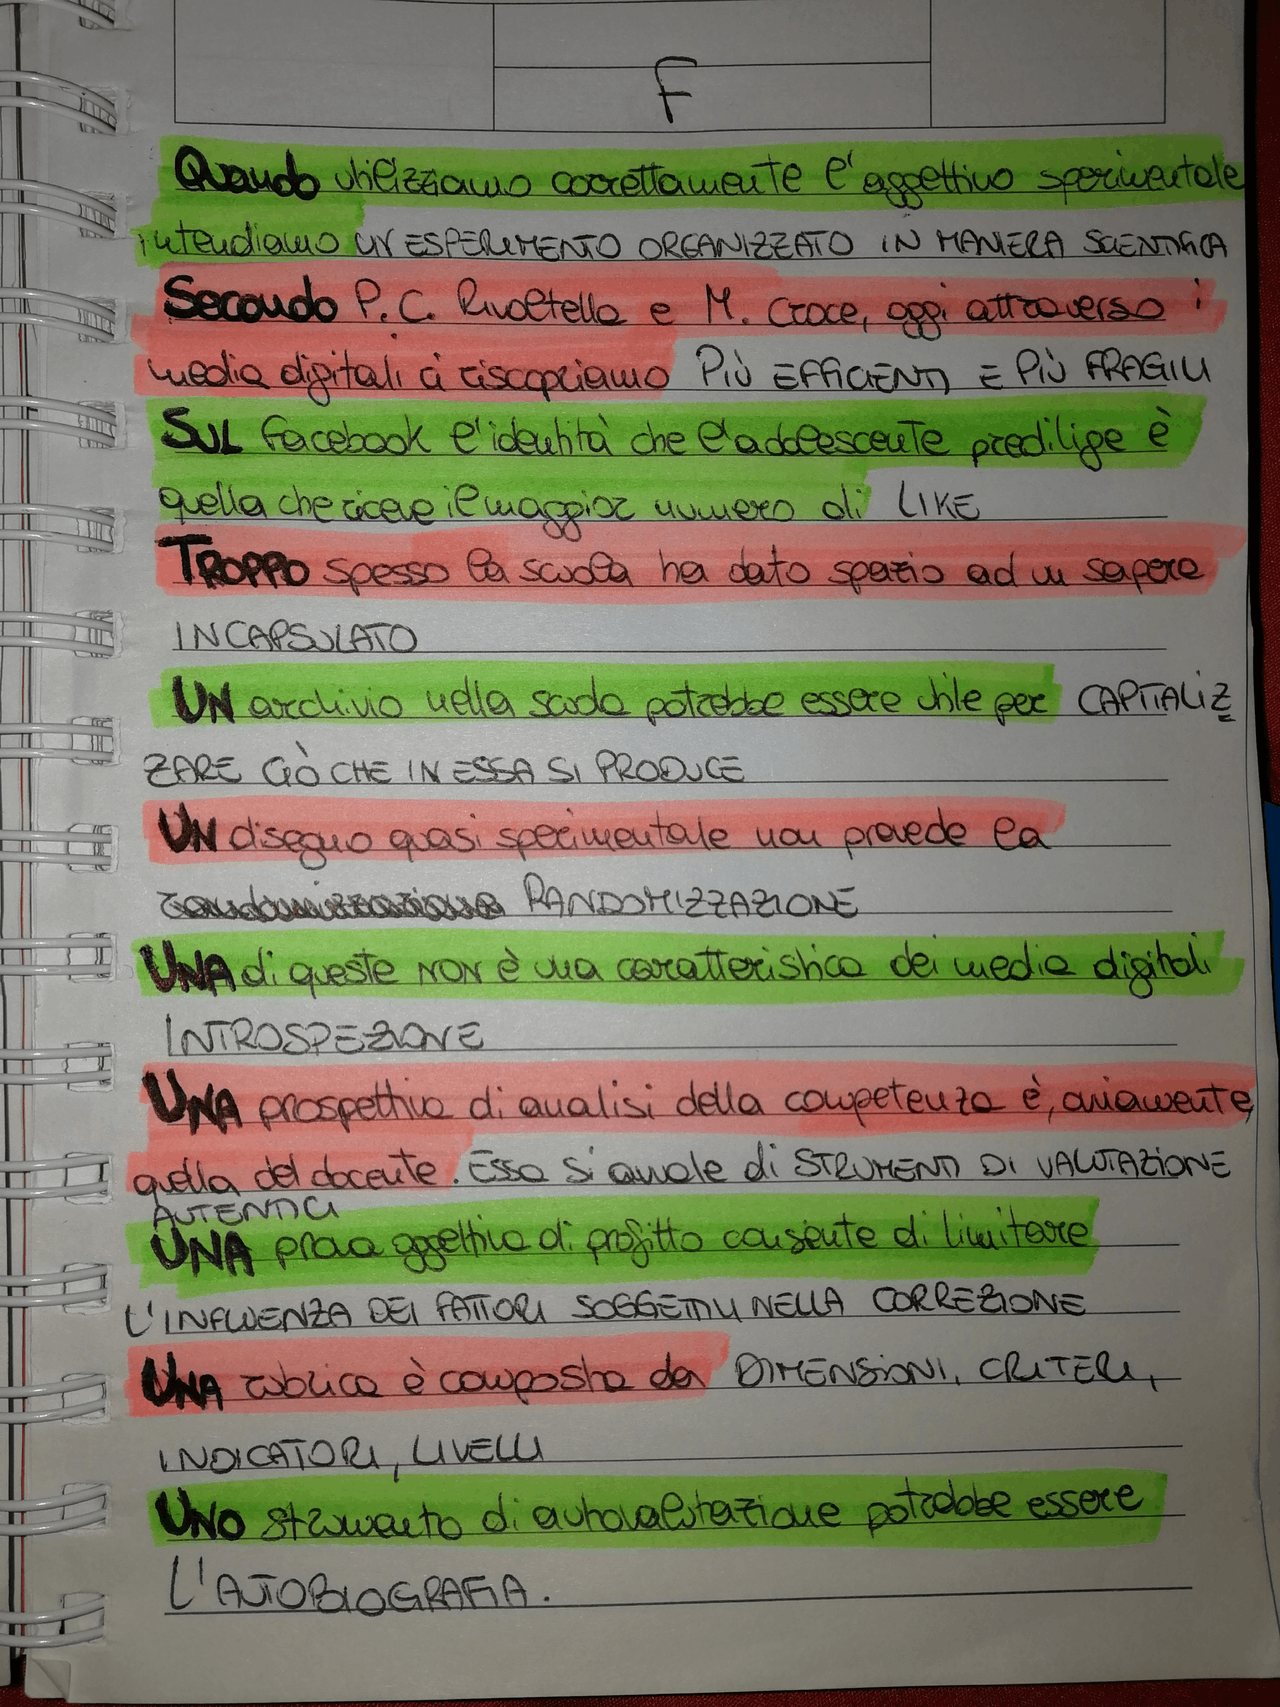 F
Quando utilizziamo correttamente l'aggettivo sperimentale
intendiamo UN ESPERIMENTO ORGANIZZATO IN MANIERA SCIENTIFICA
Secondo P. C. Rivoltella e M. Croce, oggi attraverso i
media digitali ci riscopriamo PIÙ EFFICIENTI E PIÙ FRAGILI
SUL facebook l'identità che l'adolescente predilige è
quella che riceve il maggior numero di LIKE
TROPPO spesso la scuola ha dato spazio ad un sapere
INCAPSULATO
UN archivio nella scuola potrebbe essere utile per CAPITALIZ
ZARE CIÒ CHE IN ESSA SI PRODUCE
UN disegno quasi sperimentale non prevede la
randomizzazione RANDOMIZZAZIONE
UNA di queste NON è una caratteristica dei media digitali
INTROSPEZIONE
UNA prospettiva di analisi della competenza è, ovviamente,
quella del docente. Essa si avvale di STRUMENTI DI VALUTAZIONE
AUTENTICI
UNA prova oggettiva di profitto consente di limitare
L'INFLUENZA DEI FATTORI SOGGETTIVI NELLA CORREZIONE
UNA rubrica è composta da DIMENSIONI, CRITERI,
INDICATORI, LIVELLI
UNO strumento di autovalutazione potrebbe essere
L'AUTOBIOGRAFIA.